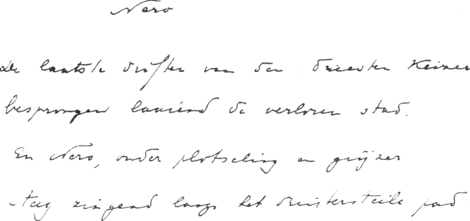 Nero
De laatste drifter van den Keizer
besprongen laaiend de verloren stad.
En Nero, onder plotseling en grijzer
steeg zingend langs het duistersteile pad.